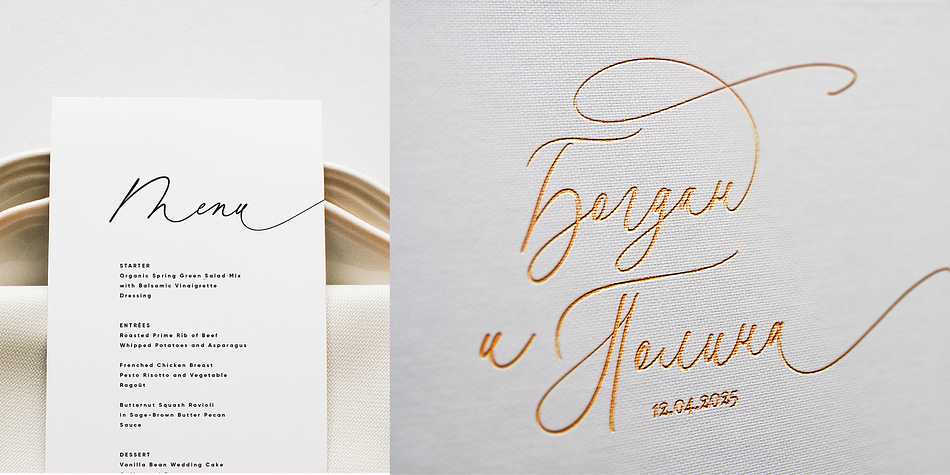 Menu
STARTER
Organic Spring Green Salad Mix
with Balsamic Vinaigrette
Dressing
ENTRÉES
Roasted Prime Rib of Beef
Whipped Potatoes and Asparagus
Frenched Chicken Breast
Pesto Risotto and Vegetable
Ragoût
Butternut Squash Ravioli
in Sage-Brown Butter Pecan
Sauce
DESSERT
Vanilla Bean Wedding Cake
Богдан
и Полина
12.04.2025